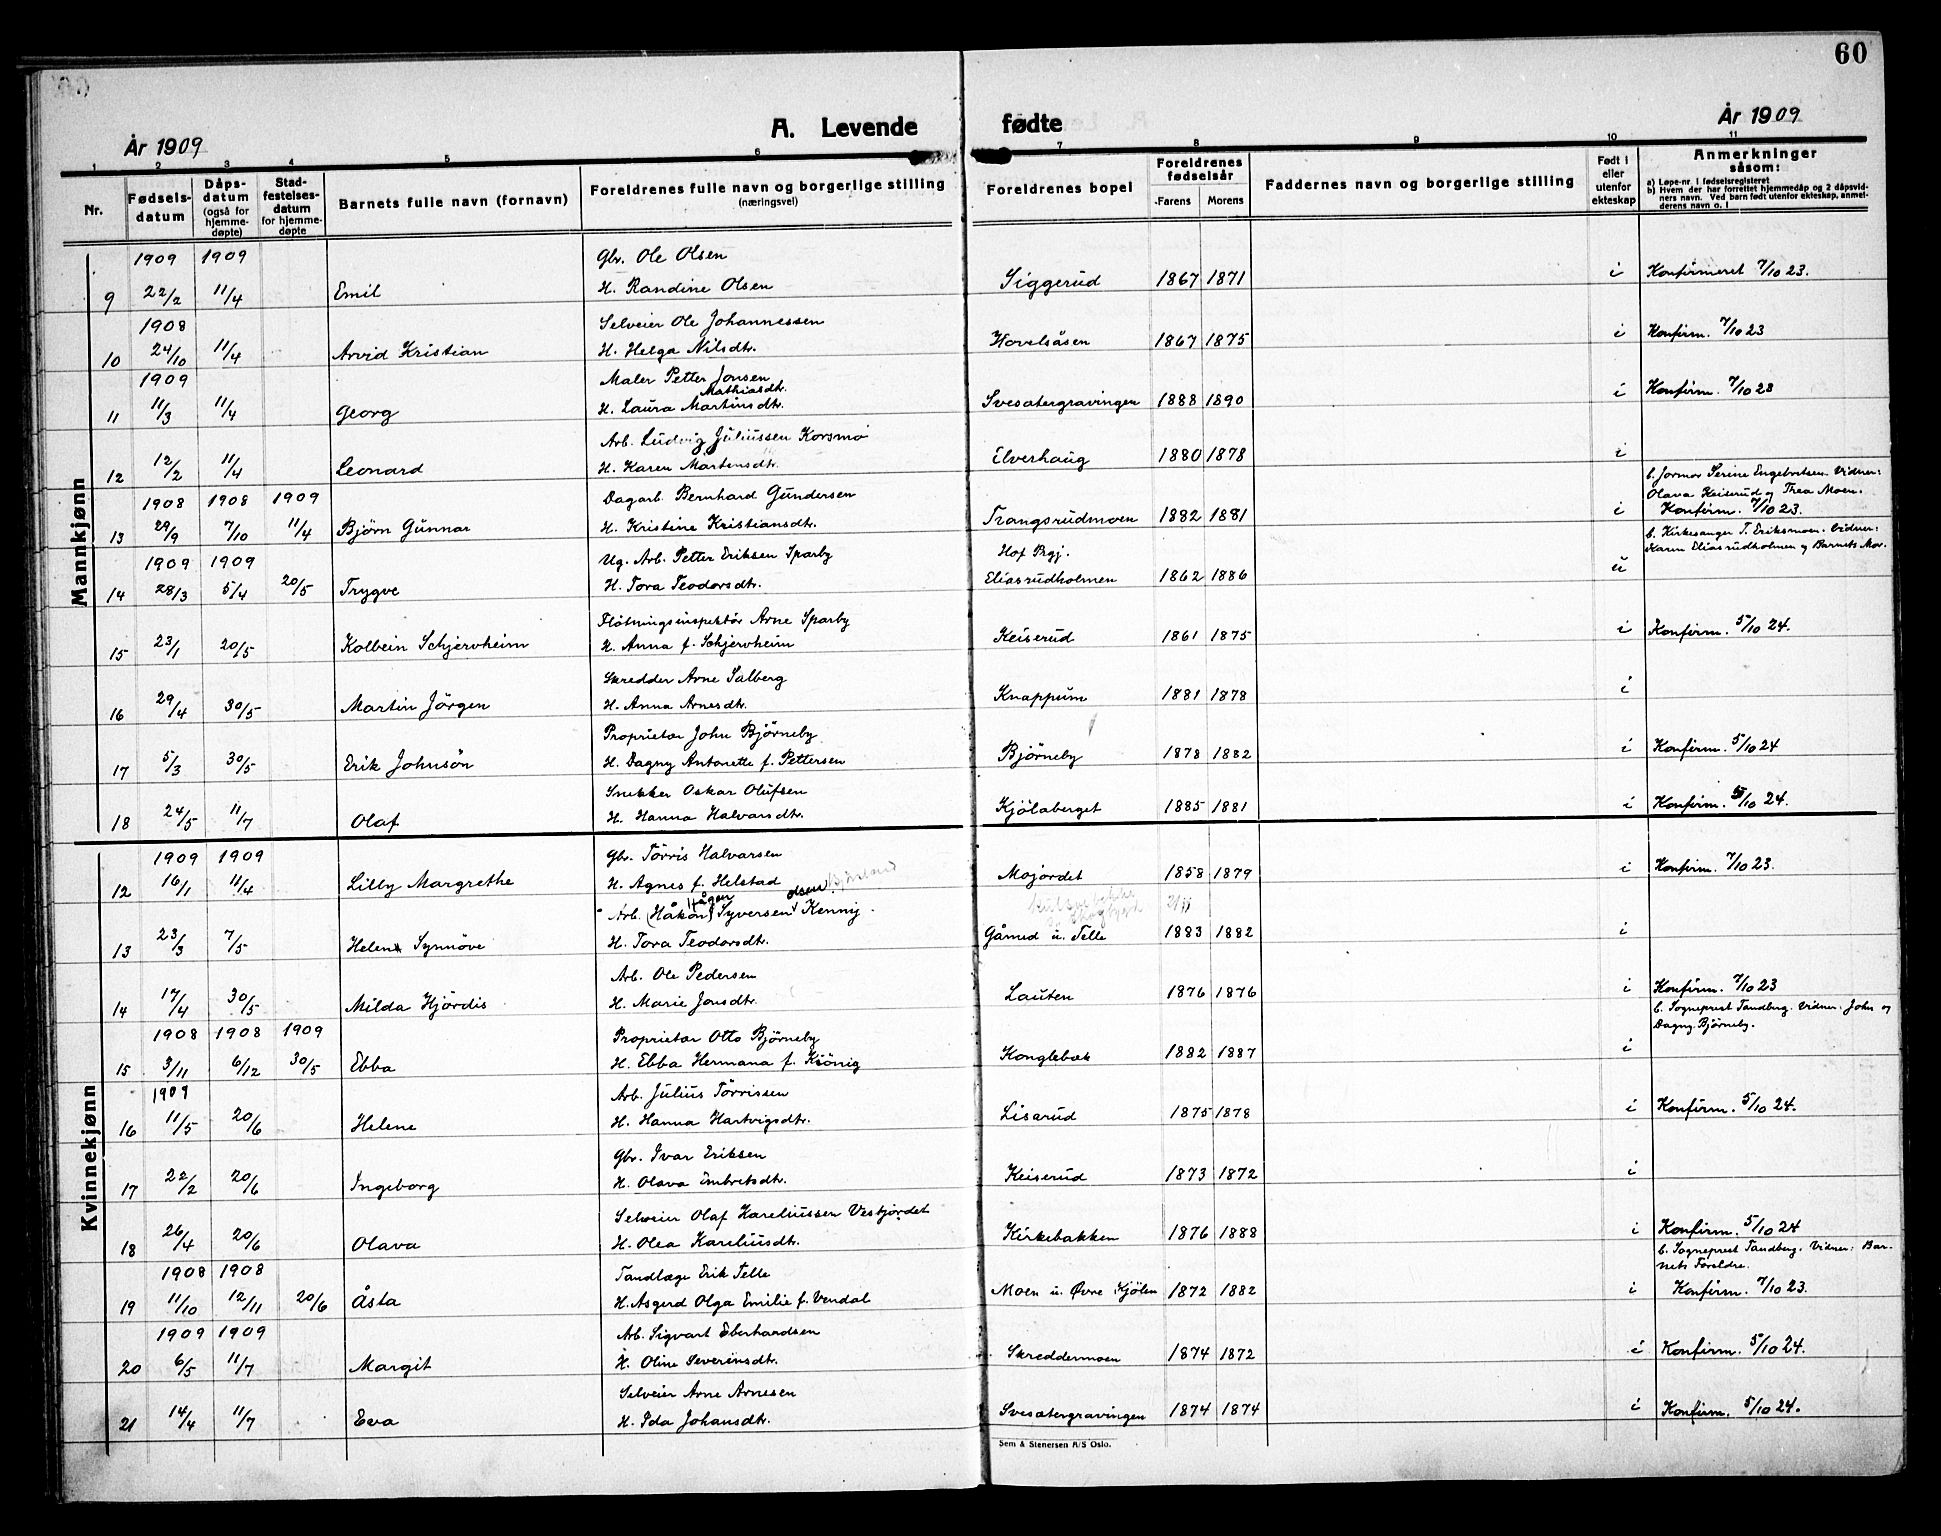 60
A. Levende fødte
År 1909
År 1909
1 2 3 4 5 6 7 8 9 10 11
Nr.
Fødsels-datum
Dåps-datum (også for hjemme-døpte)
Stad-festelses-datum for hjemme-døpte
Barnets fulle navn (fornavn)
Foreldrenes fulle navn og borgerlige stilling (næringsvei)
Foreldrenes bopel
Foreldrenes fødselsår
Farens Morens
Faddernes navn og borgerlige stilling
Født i eller utenfor ekteskap
Anmerkninger såsom:
a) Løpe-nr. i fødselsregisteret
b) Hvem der har forrettet hjemmedåp og 2 dåpsvid-
ners navn. Ved barn født utenfor ekteskap, anmel-
derens navn o. l
Mannkjønn
1909 1909 Gbr. Ole Olsen
9 22/2 11/4 Emil H. Randine Olsen Siggerud 1867 1871 i Konfirmeret 7/10 23.
1908 Selveier Ole Johannessen
10 24/10 11/4 Arvid Kristian H. Helga Nilsdtr. Hovelsåsen 1867 1875 i Konfirm. 7/10 23
1909 Maler Petter Jonsen
Mathiasdtr.
11 11/3 11/4 Georg H. Laura Martinsdtr. Svesætergravingen 1888 1890 i Konfirm. 7/10 23
Arb. Ludvig Juliussen Korsmo
12 12/2 11/4 Leonard H. Karen Martensdtr. Elverhaug 1880 1878 i
b. Jormor Serine Engebretsen. Vidner:
1908 1908 1909 Dagarb. Bernhard Gundersen Olava Keiserud og Thea Moen.
13 29/9 7/10 11/4 Bjørn Gunnar H. Kristine Kristiansdtr. Trangsrudmoen 1882 1881 i Konfirm. 7/10 23.
b. Kirkesanger T. Eriksmoen. Vidner:
1909 1909 Ug. Arb. Petter Eriksen Sparby Hof Prgj. Karen Eliasrudholmen og Barnets Mor.
14 28/3 5/4 20/5 Trygve H. Tora Teodorsdtr. Eliasrudholmen 1862 1886 u
Fløtningsinspektør Arne Sparby
15 23/1 20/5 Kolbein Schjervheim H. Anna f. Schjervheim Keiserud 1861 1875 i Konfirm. 5/10 24.
Skredder Arne Salberg
16 29/4 30/5 Martin Jörgen H. Anna Arnesdtr. Knappum 1881 1878 i
Proprietær John Björneby
17 5/3 30/5 Erik Johnsön H. Dagny Antonette f. Pettersen Björneby 1878 1882 i Konfirm. 5/10 24
Snekker Oskar Olufsen
18 24/5 11/7 Olaf H. Hanna Halvarsdtr. Kjölaberget 1885 1881 i Konfirm. 5/10 24.
Kvinnekjønn
1909 1909 Gbr. Törris Halvarsen
12 16/1 11/4 Lilly Margrethe H. Agnes f. Helstad Mojordet 1858 1879 i Konfirm. 7/10 23.
Hågen olsen
Arb. (Håkon) Syversen Kennig.
13 23/3 7/5 Helen Synnöve H. Tora Teodorsdtr. Gåmed u. Telle 1883 1882 i
Arb. Ole Pedersen
14 17/4 30/5 Milda Hjördis H. Marie Jonsdtr. Lauten 1876 1876 i Konfirm. 7/10 23
b. Sogneprest Tandberg. Vidner: John og
1908 1908 1909 Proprietær Otto Björneby Dagny Björneby.
15 3/11 6/12 30/5 Ebba H. Ebba Hermana f. König Konglebæk 1882 1887 i
1909 Arb. Julius Törrissen
16 11/5 20/6 Helene H. Hanna Hartvigsdtr. Lisarud 1875 1878 i Konfirm. 5/10 24.
Gbr. Ivar Eriksen
17 22/2 20/6 Ingeborg H. Olava Embretsdtr. Keiserud 1873 1872 i
Selveier Olaf Kareliussen Vestjordet
18 26/4 20/6 Olava H. Olea Kareliusdtr. Kirkebakken 1876 1888 i Konfirm. 5/10 24
b. Sogneprest Tandberg. Vidner: Bar-
1908 1908 Tandlæge Erik Telle nets Foreldre.
19 11/10 12/11 20/6 Åsta H. Asgerd Olga Emilie f. Vendal Moen u. Övre Kjölen 1872 1882 i Konfirm. 7/10 23.
1909 1909 Arb. Sigvart Eberhardsen
20 6/5 11/7 Margit H. Oline Severinsdtr. Skreddermoen 1874 1872 i Konfirm. 5/10 24.
Selveier Arne Arnesen
21 14/4 11/7 Eva H. Ida Johansdtr. Svesætergravingen 1874 1874 i Konfirm. 5/10 24.
Sem & Stenersen A/S Oslo.